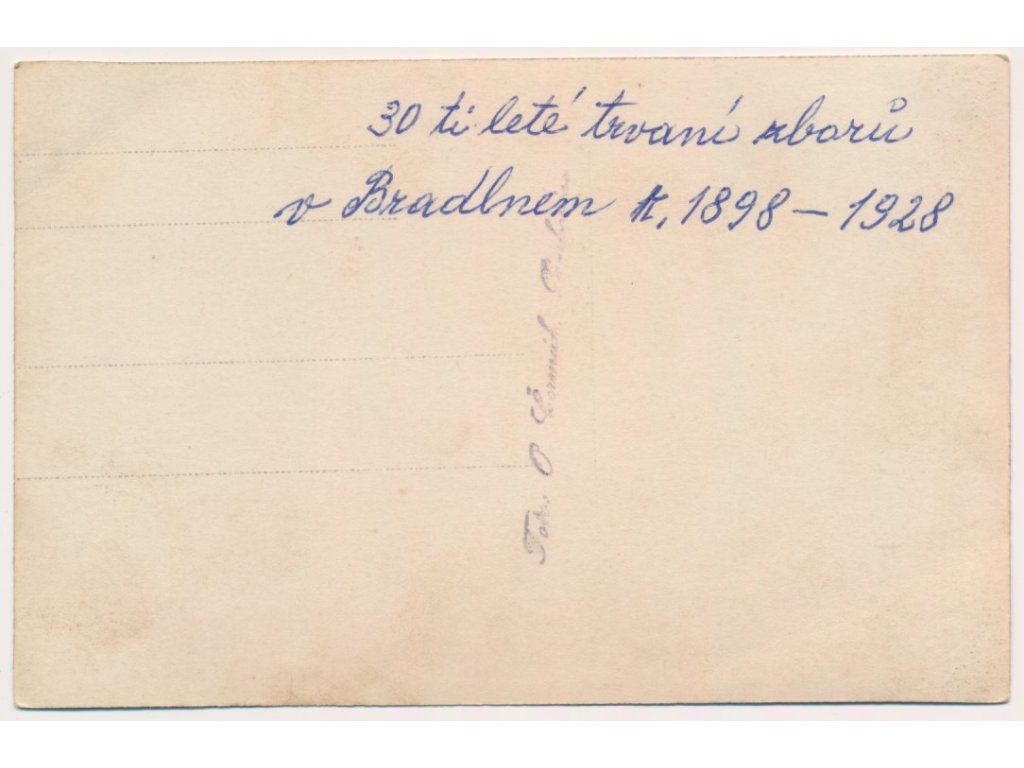 30 ti leté trvaní zborů
v Bradlnem r, 1898 – 1928
Foto. O Čermák